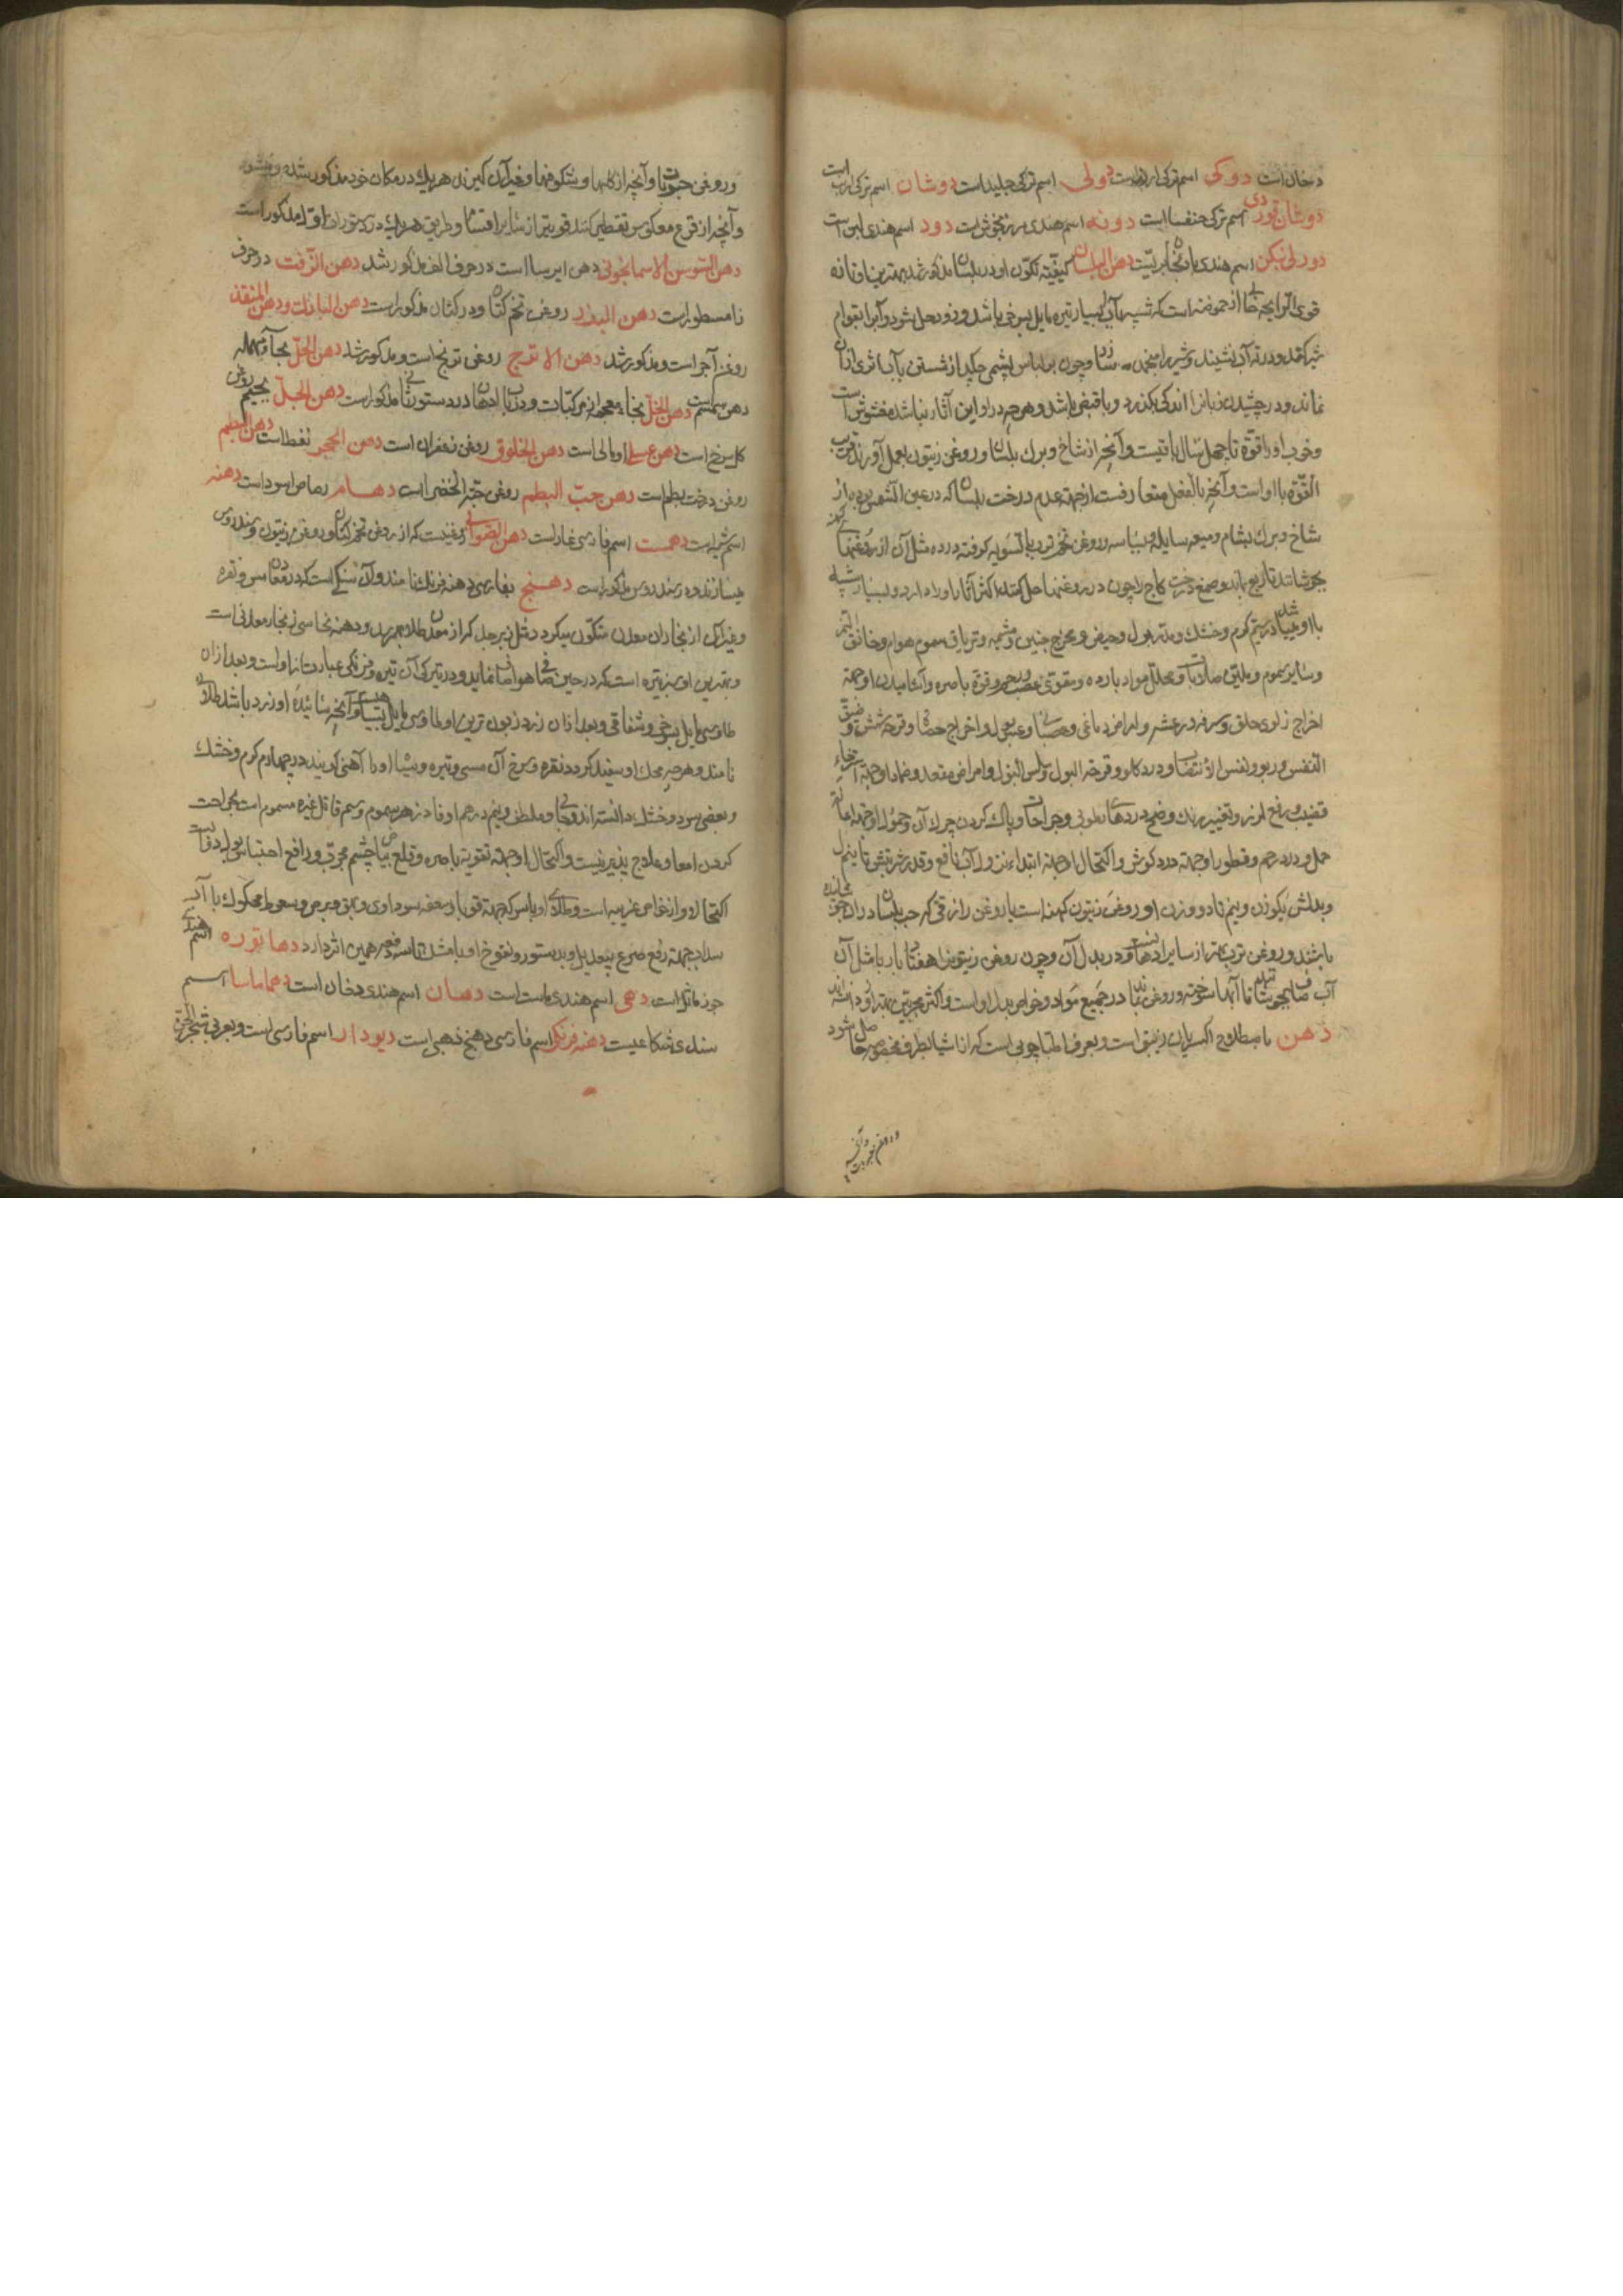 دخان است دوکی اسم ترکی است دولی اسم ترکی جلید است دوشان اسم ترکی ارنب است
دوشان قوردی اسم ترکی خنفسا است دونه اسم هندی مرزنجوش است دود اسم هندی لبن است
اسم هندی بادنجان بریست دهن البلسان کیفیّته تکوّن او در بلسان مذکور شد بهترین او تازه
قوی الرایحه خالی از حموضه است که شبیه بآب بسیار تیره مایل بسرخی باشد و زود حل شود و آبرا بقوام
شیر کند و در ته آب نشیند و شیر را منجمد سازد و چون بر لباس پشمی چکید از شستن بآب اثری از آن
نماند و در چشیدن زبانرا اندکی بگزد و با قبض باشد و هر چه در او این آثار نباشد مغشوش است
و خوب او را قوّة تا چهل سال باقیست و آنچه از شاخ و برک بلسان و روغن زیتون بعمل آورند قریب
القوّه باو است و آنچه بالفعل متعارفست از جهته عدم درخت بلسان که در عین الشمس بوده از
شاخ و برک بشام و میعه سایله و بسباسه و روغن تخم ترب بالسّویه کرفته در ده مثل آن از روغنهای کهنه
بجوشانند تا بربع آید و صمغ درخت کاج را چون در روغنها حل کنند اکثر آثار او را دارد و بسیار شبیه
باو میباشد در سیّم کرم و خشک و مدّر بول و حیض و مخرج جنین و مشیمه و تریاق سموم هوام و خانق النمر
و سایر سموم و ملیّن صلابات و محلّل مواد بارده و مقوّی عصب و رحم و قوّة باصره و آشامیدن او جهته
اخراج زلوی حلق و سرفه و رعشه و امراض دماغی و عصبانی و عسر بول و اخراج حصاة و قرحه شش و ضیق
النفس و ربو و نفس الانتصاب و درد کلیه و قرحة البول و سلس البول و امراض مقعد و ضماد او جهته استرخاء
قضیب و رفع لرز و تغییر رنک وضح و دردهای رطوبی و جراحات و پاک کردن چرک آن و حمول او جهته اعانة
حمل و درد رحم و قطور او جهته درد کوش و اکتحال او جهته ابتداء نزول آب نافع و قدر شربتش تا نیم درهم
و بدلش یکوزن و نیم تا دو وزن او روغن زیتون کهنه است یا روغن رازقی که حب بلسان در آن جوشانیده
باشند و روغن ترب بهتر از سایر ادهان است در بدل آن و چون روغن زیتون را هفتاد بار با مثل آن
آب صاف بجوشانند تا آبها سوخته و روغن بماند در جمیع مواد و خواص بدل او است و اکثر مجرّبین بهتر از او دانسته‌اند
دهن باصطلاح اکسیریان زیبق است و بعرف اطبّا چربی است که از اشیا بطرف مخصوصه حاصل شود
و روغن حبوب و آنچه
و روغن حبوبات و آنچه از کلها و شکوفها و غیر آن کیرند هر یک در مکان خود مذکور شده و میشود
و آنچه از قرع معکوس تقطیر کنند قویتر از سایر اقسام و طریق هر یک در دستورات اوّل مذکور است
دهن السّوسن الاسمانجونی دهن ایرسا است در حرف الف مذکور شد دهن الزّفت در حرف
زا مسطور است دهن البذر روغن تخم کتان و در کتان مذکور است دهن المبارک و دهن المنقذ
روغن آجر است و مذکور شد دهن الاترج روغن ترنج است و مذکور شد دهن الحلّ بحاء مهمله
دهن سمسم است دهن الخلّ بخاء معجمه از مرکّبات و در باب ادهان در دستور ثانی مذکور است دهن الجلّ بجیم روغن
کل سرخ است دهن عسلی اومالی است دهن الخلوق روغن زعفران است دهن الحجر نفط است دهن البطم
روغن درخت بطم است دهن حبّ البطم روغن حبّة الخضرا است دهام رصاص اسود است دهنه
دهمست اسم فارسی غار است دهن الصّوابی روغنیست که از روغن تخم کتان و روغن زیتون و سندروس
میسازند و در سندروس مذکور است دهنج بفارسی دهنه فرنک نامند و آن سنکی است که در معادن مس و نقره
و غیر آن از بخار آن معدن متکوّن میکردد مثل زبرجد که از معدن طلا بهم رسد و دهنه نحاسی زنجار معدنی است
و بهترین او سبز تیره است که در حین صفای هوا صاف نماید و در تیرکی آن تیره و فرنکی عبارت از او است و بعد از آن
طاوسی مایل بسرخی و شفافی و بعد از آن زرد و زبون‌ترین او طاوسی مایل بسیاهی است و آنچه سائیدهٔ او زرد باشد طلائی
نامند و هر چه محک او سفید کردد نقره و سرخ آن مسی و تیره و سیاه او را آهنی کویند در چهارم کرم و خشک
و بعضی سرد و خشک دانسته‌اند و جالی و ملطف و نیم درهم او فادزهر سموم و سمّ قاتل غیر مسموم است بجراحت
کردن امعا و علاج پذیر نیست و اکتحال او جهته تقویت باصره و قلع بیاض چشم مجرّب و رافع احتباس بول
اکتحال او از خواص غریبه است و طلای او با سرکه جهته قوبا و سعفه سوداوی و بهق و برص و سعوط محکوک با آب
سداب جهته رفع صرع بیعدیل و بدستور نفوخ او با مشک همین اثر دارد دهاتوره اسم هندی
جوز ماثل است دهی اسم هندی ماست است دهان اسم هندی دخان است دهماماسا اسم
هندی شکاعیست دهنه فرنکی اسم فارسی دهنج ذهبی است دیودار اسم فارسی است و بعربی شجرة الجن